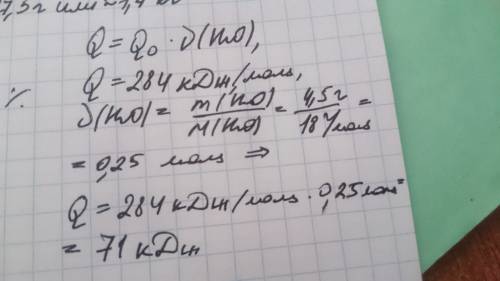 7,5 г или ≈ 1,4
Q = Q₀ · ν(H₂O),
Q = 284 кДж/моль,
ν(H₂O) = m(H₂O)/M(H₂O) = 4,5 г/18 г/моль =
= 0,25 моль ⇒
Q = 284 кДж/моль · 0,25 моль =
= 71 кДж